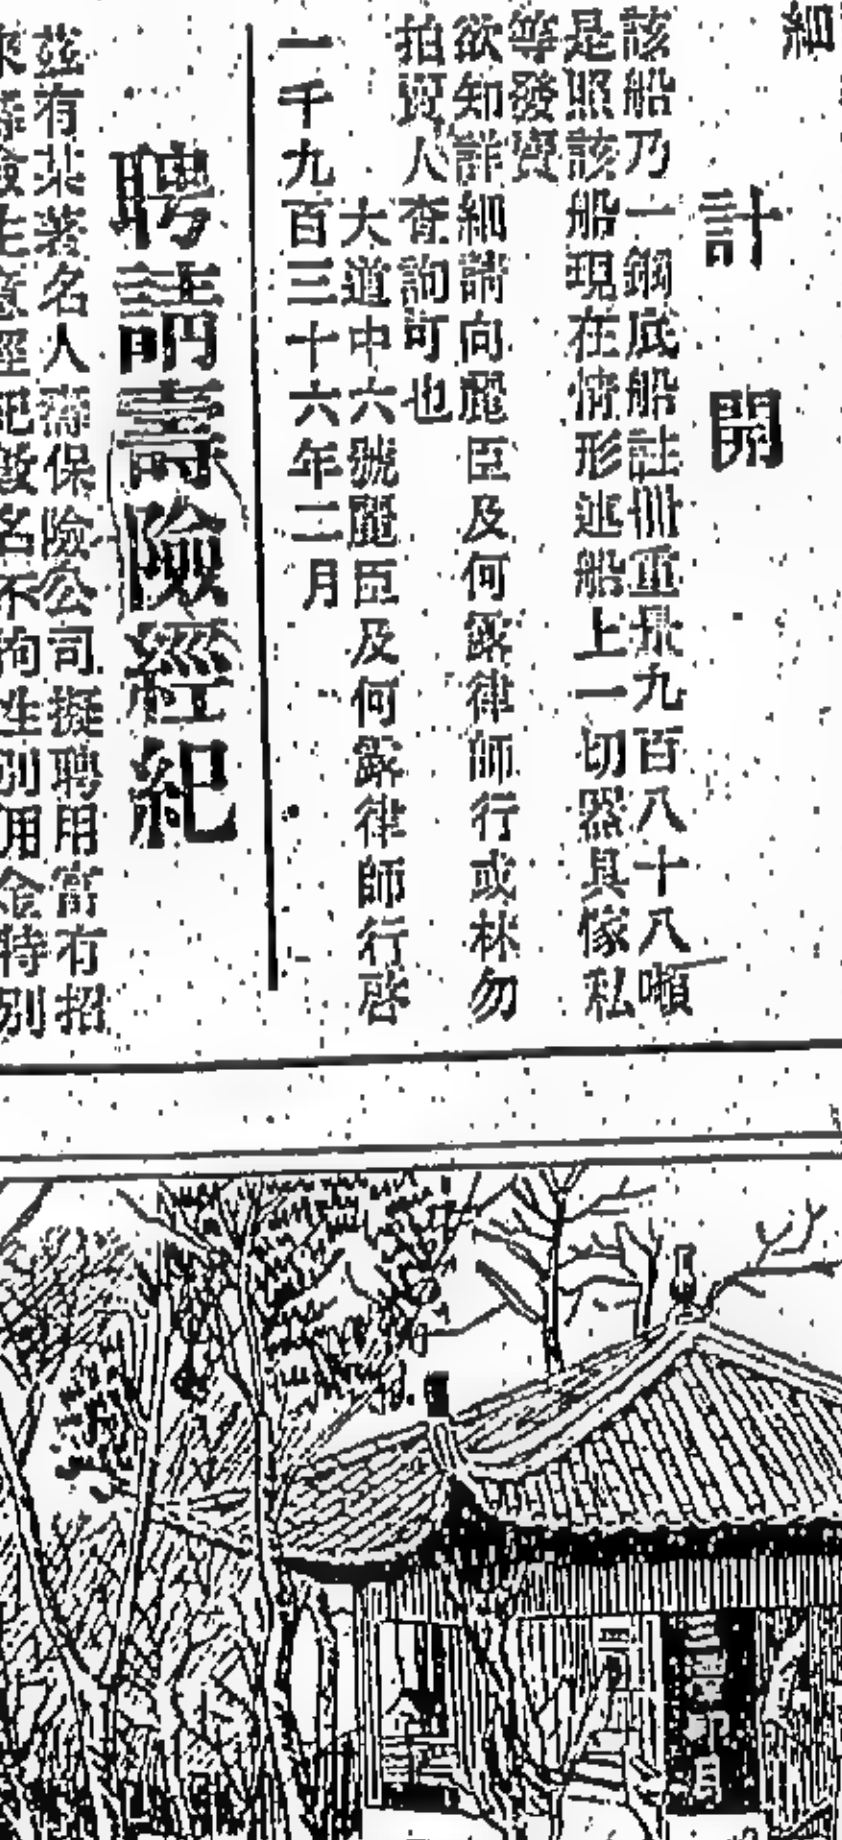 細
計開
該船乃一鋼底船註冊重量九百八十八噸
是照該船現在情形連船上一切器具傢私
等發賣
欲知詳細請向麗臣及何露律師行或林勿
拍賣人查詢可也
大道中六號麗臣及何露律師行啓
一千九百三十六年二月
聘請壽險經紀
茲有某著名人壽保險公司擬聘用富有招
來壽險生意經紀數名不拘性別用金特別
三潭印月